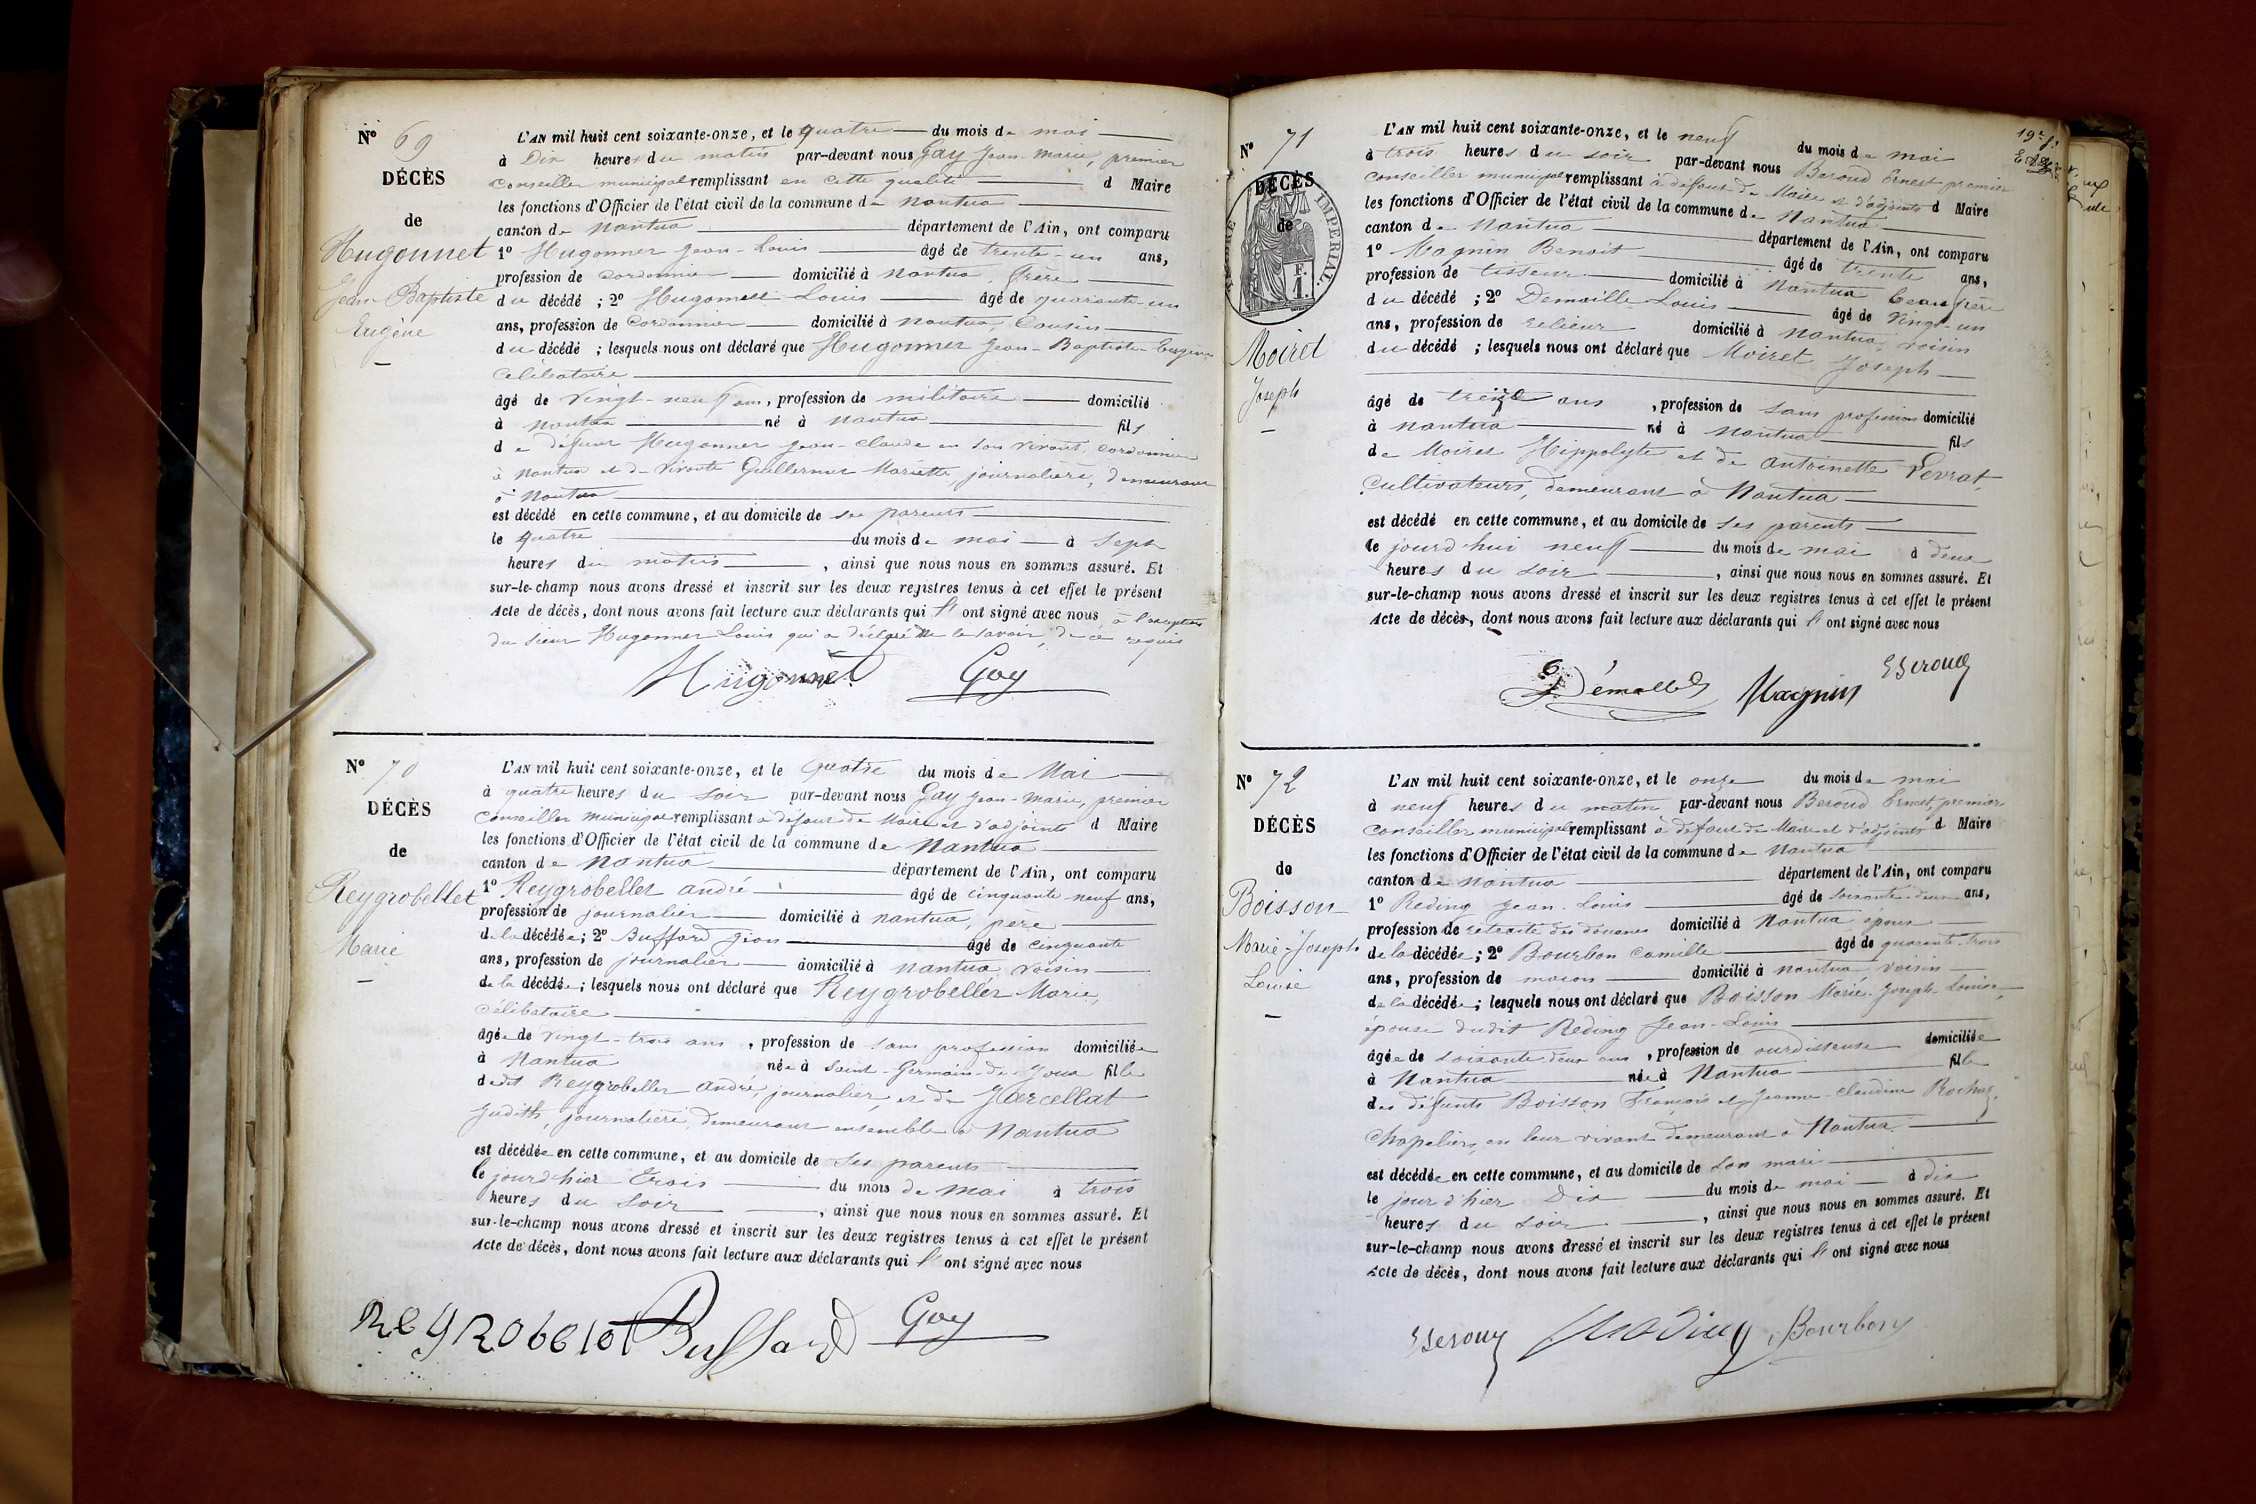 N° 69
DÉCÈS
de
Hugonnet
Jean-Baptiste
Eugène
L'AN mil huit cent soixante-onze, et le quatre du mois de mai
à Dix heures du matin par-devant nous Gay Jean-Marie, premier
conseiller municipal remplissant en cette qualité d Maire
les fonctions d'Officier de l'état civil de la commune de Nantua
canton de Nantua département de l'Ain, ont comparu
1° Hugonnet Jean-Louis âgé de trente-un ans,
profession de cordonnier domicilié à Nantua, frère
du décédé ; 2° Hugonnet Louis âgé de quarante-un
ans, profession de Cordonnier domicilié à Nantua, Cousin
du décédé ; lesquels nous ont déclaré que Hugonnet Jean-Baptiste-Eugène
célibataire
âgé de vingt-neuf ans, profession de militaire domicilié
à Nantua né à Nantua fils
de défunt Hugonnet Jean-Claude en son vivant, cordonnier
à Nantua et de vivante Guillermet Mariette, journalière, demeurant
à Nantua
est décédé en cette commune, et au domicile de ses parents
le quatre du mois de mai à Sept
heures du matin, ainsi que nous nous en sommes assuré. Et
sur-le-champ nous avons dressé et inscrit sur les deux registres tenus à cet effet le présent
Acte de décès, dont nous avons fait lecture aux déclarants qui l' ont signé avec nous à l'exception
du sieur Hugonnet Louis qui a déclaré ne le savoir, de ce requis
Hugonnet Gay
N° 70
DÉCÈS
de
Reygrobellet
Marie
L'AN mil huit cent soixante-onze, et le quatre du mois de Mai
à quatre heures du soir par-devant nous Gay Jean-Marie, premier
conseiller municipal remplissant à défaut de Maire et d'adjoints d Maire
les fonctions d'Officier de l'état civil de la commune de Nantua
canton de Nantua département de l'Ain, ont comparu
1° Reygrobellet André âgé de cinquante neuf ans,
profession de journalier domicilié à Nantua, père
de la décédée; 2° Buffard âgé de cinquante
ans, profession de journalier domicilié à Nantua, voisin
de la décédée; lesquels nous ont déclaré que Reygrobellet Marie,
célibataire
âgée de vingt-trois ans, profession de sans profession domiciliée
à Nantua née à Saint-Germain-de-Joux fille
dudit Reygrobellet André, journalier, et de Marcellat
Judith, journalière, demeurant ensemble à Nantua
est décédée en cette commune, et au domicile de ses parents
le jourd'hier trois du mois de mai à trois
heures du soir, ainsi que nous nous en sommes assuré. Et
sur-le-champ nous avons dressé et inscrit sur les deux registres tenus à cet effet le présent
Acte de décès, dont nous avons fait lecture aux déclarants qui l' ont signé avec nous
Buffard Gay
N° 71
DÉCÈS
de
TIMBRE IMPERIAL.
F.
1.
Moiret
Joseph
L'AN mil huit cent soixante-onze, et le neuf du mois de mai
à trois heures du soir par-devant nous Beroud Ernest premier
conseiller municipal remplissant à défaut de Maire et d'adjoints d Maire
les fonctions d'Officier de l'état civil de la commune de Nantua
canton de Nantua département de l'Ain, ont comparu
1° Magnin Benoit âgé de trente ans,
profession de tisseur domicilié à Nantua beau frère
du décédé ; 2° Demaille Louis âgé de vingt-un
ans, profession de relieur domicilié à Nantua, voisin
du décédé ; lesquels nous ont déclaré que Moiret Joseph
âgé de treize ans, profession de sans profession domicilié
à Nantua né à Nantua fils
de Moiret Hippolyte et de Antoinette Perrat,
Cultivateurs, demeurant à Nantua
est décédé en cette commune, et au domicile de ses parents
le jourd'hui neuf du mois de mai à deux
heures du soir, ainsi que nous nous en sommes assuré. Et
sur-le-champ nous avons dressé et inscrit sur les deux registres tenus à cet effet le présent
Acte de décès, dont nous avons fait lecture aux déclarants qui l' ont signé avec nous
Magnin EBeroud
N° 72
DÉCÈS
de
Boisson
Marie-Joseph
Louise
L'AN mil huit cent soixante-onze, et le onze du mois de mai
à neuf heures du matin par-devant nous Beroud Ernest, premier
conseiller municipal remplissant à défaut de Maire et d'adjoints d Maire
les fonctions d'Officier de l'état civil de la commune de Nantua
canton de Nantua département de l'Ain, ont comparu
1° Reding Jean-Louis âgé de soixante-deux ans,
profession de retraité des douanes domicilié à Nantua, époux
de la décédée; 2° Bourbon Camille âgé de quarante-trois
ans, profession de maçon domicilié à Nantua, voisin
de la décédée; lesquels nous ont déclaré que Boisson Marie-Joseph-Louise,
épouse dudit Reding Jean-Louis
âgée de soixante-deux ans, profession de ourdisseuse domiciliée
à Nantua née à Nantua fille
des défunts Boisson François et Jeanne-Claudine Rochez,
Chapeliers, en leur vivant demeurant à Nantua
est décédée en cette commune, et au domicile de son mari
le jour d'hier Dix du mois de mai à dix
heures du soir, ainsi que nous nous en sommes assuré. Et
sur-le-champ nous avons dressé et inscrit sur les deux registres tenus à cet effet le présent
Acte de décès, dont nous avons fait lecture aux déclarants qui l' ont signé avec nous
EBeroud Reding Bourbon